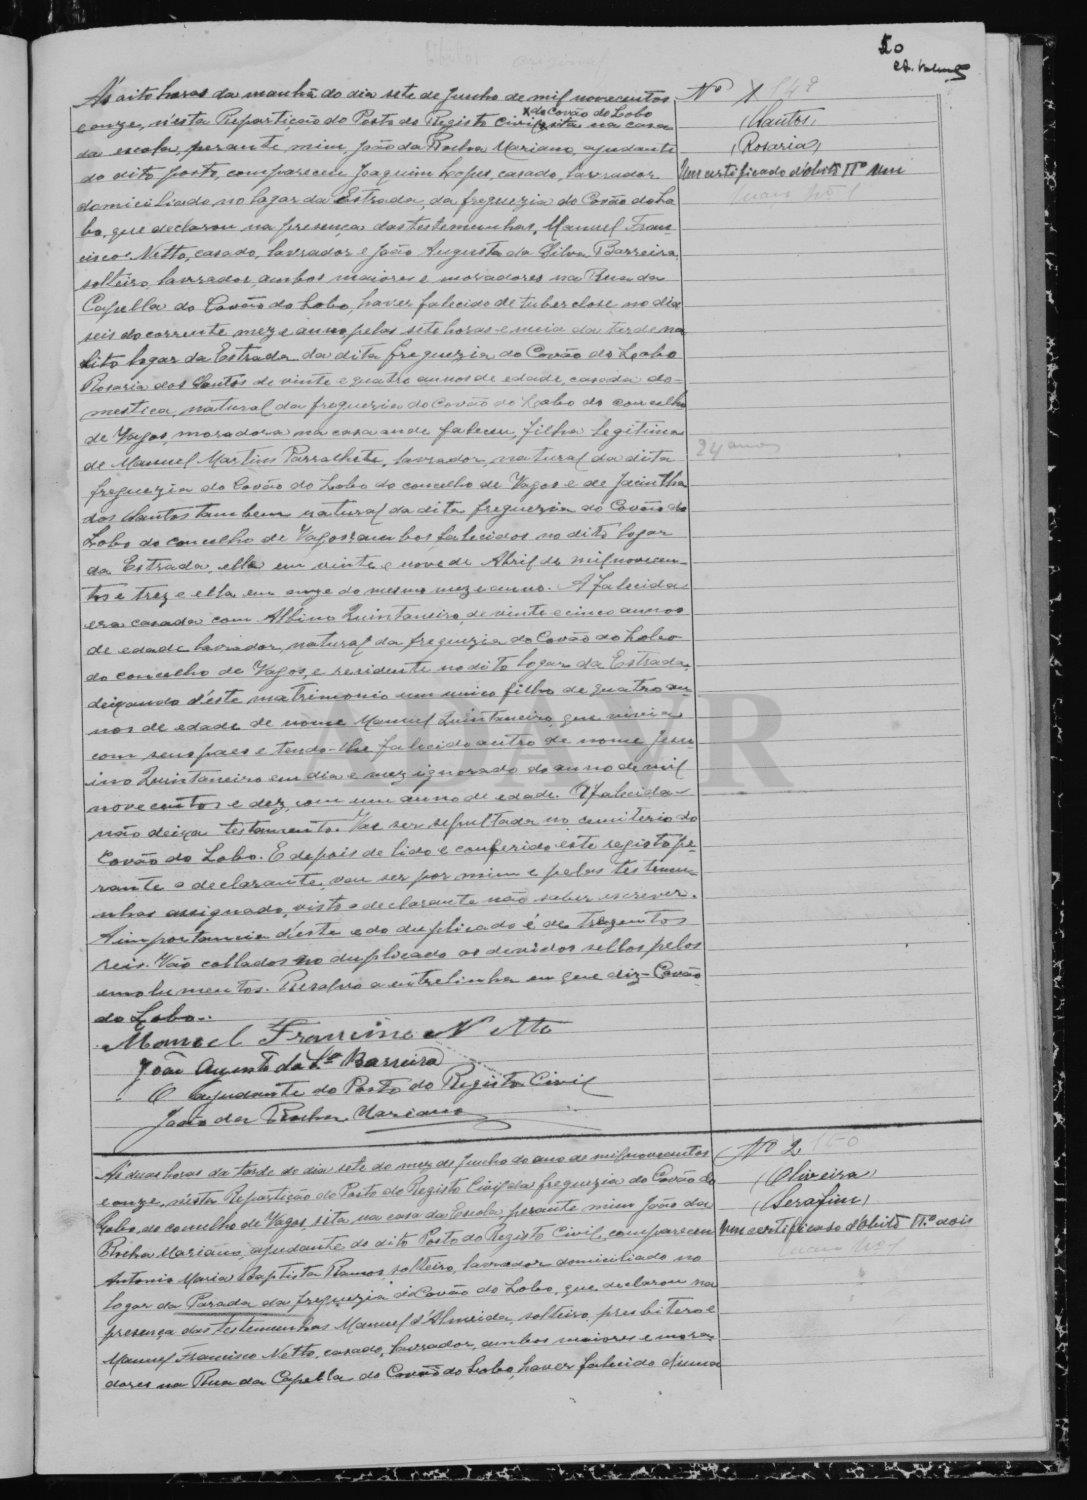 50
Ás oito horas da manhã do dia sete de Junho de mil novecentos
e onze, n'esta Repartição do Posto do Registo Civil, sita na casa
x do Covão do Lobo
da escola, perante, mim, João da Rocha Mariano, ajudante
do dito posto, compareceu Joaquim Lopes, casado, lavrador
domiciliado, no logar da Estrada, da freguezia do Covão do Lo
bo, que declarou na presença das testemunhas, Manuel Fran
cisco Netto, casado, lavrador e João Augusto da Silva Barreira,
solteiro, lavrador, ambos maiores e moradores na Rua da
Capella do Covão do Lobo, haver falecido de tuberclose no dia
seis do corrente mez e anno pelas sete horas e meia da tarde no
dito logar da Estrada da dita freguezia do Covão do Lobo
Rosaria dos Santos de vinte e quatro annos de edade, casada do-
mestica, natural da freguezia do Covão do Lobo do concelho
de Vagos, moradora na casa onde faleceu, filha legitima
de Manuel Martins Parralheta, lavrador, natural da dita
freguezia do Covão do Lobo do concelho de Vagos e de Jacintha
dos Santos tambem natural da dita freguezia do Covão do
Lobo do concelho de Vagos ambos falecidos no dito logar
da Estrada, elle em vinte e nove de Abril de mil novecen-
tos e trez e ella em onze do mesmo mez e anno. A falecida
era casada com Albino Quintaneiro de vinte e cinco annos
de edade lavrador, natural da freguezia do Covão do Lobo
do concelho de Vagos, e residente no dito logar da Estrada,
deixando d'este matrimonio um unico filho de quatro an
nos de edade de nome Manuel Quintaneiro, que vivia
com seus paes e tendo-lhe falecido outro de nome
Quintaneiro em dia e mez ignorado do anno de mil
novecentos e dez, com um anno de edade. A falecida
não deixa testamento. Vae ser sepultada no cemiterio do
Covão do Lobo. E depois de lido e conferido este registo pe-
rante o declarante, vae ser por mim e pelas testemu-
nhas assignado, visto o declarante não saber escrever.
A importancia d'este e do duplicado é de trezentos
reis. Vão collados no duplicado os devidos sellos pelos
emolumentos. Resalvo a entrelinha em que diz-Covão
do Lobo.
Manoel Francisco Netto
João Augusto da Sa Barreira
O ajudante do Posto do Registo Civil
João da Rocha Mariano
Nº 1 149
(Santos)
(Rosaria)
Um certificado d'obito Nº um
24 annos
ADAVR
Ás duas horas da tarde do dia sete do mez de Junho do ano de mil novecentos
e onze, n'esta Repartição do Posto do Registo Civil da freguezia do Covão do
Lobo, do concelho de Vagos, sita na casa da Escola, perante mim João da
Rocha Mariano, ajudante do dito Posto do Registo Civil, compareceu
Antonio Maria Baptista Ramos, solteiro, lavrador domiciliado no
logar da Parada da freguezia do Covão do Lobo, que declarou na
presença das testemunhas Manuel d'Almeida, solteiro, presbitero e
Manuel Francisco Netto, casado, lavrador, ambos maiores e mora
dores na Rua da Capella do Covão do Lobo, haver falecido d'uma
Nº 2 150
(Oliveira)
(Serafim)
Um certificado d'obito Nº dois